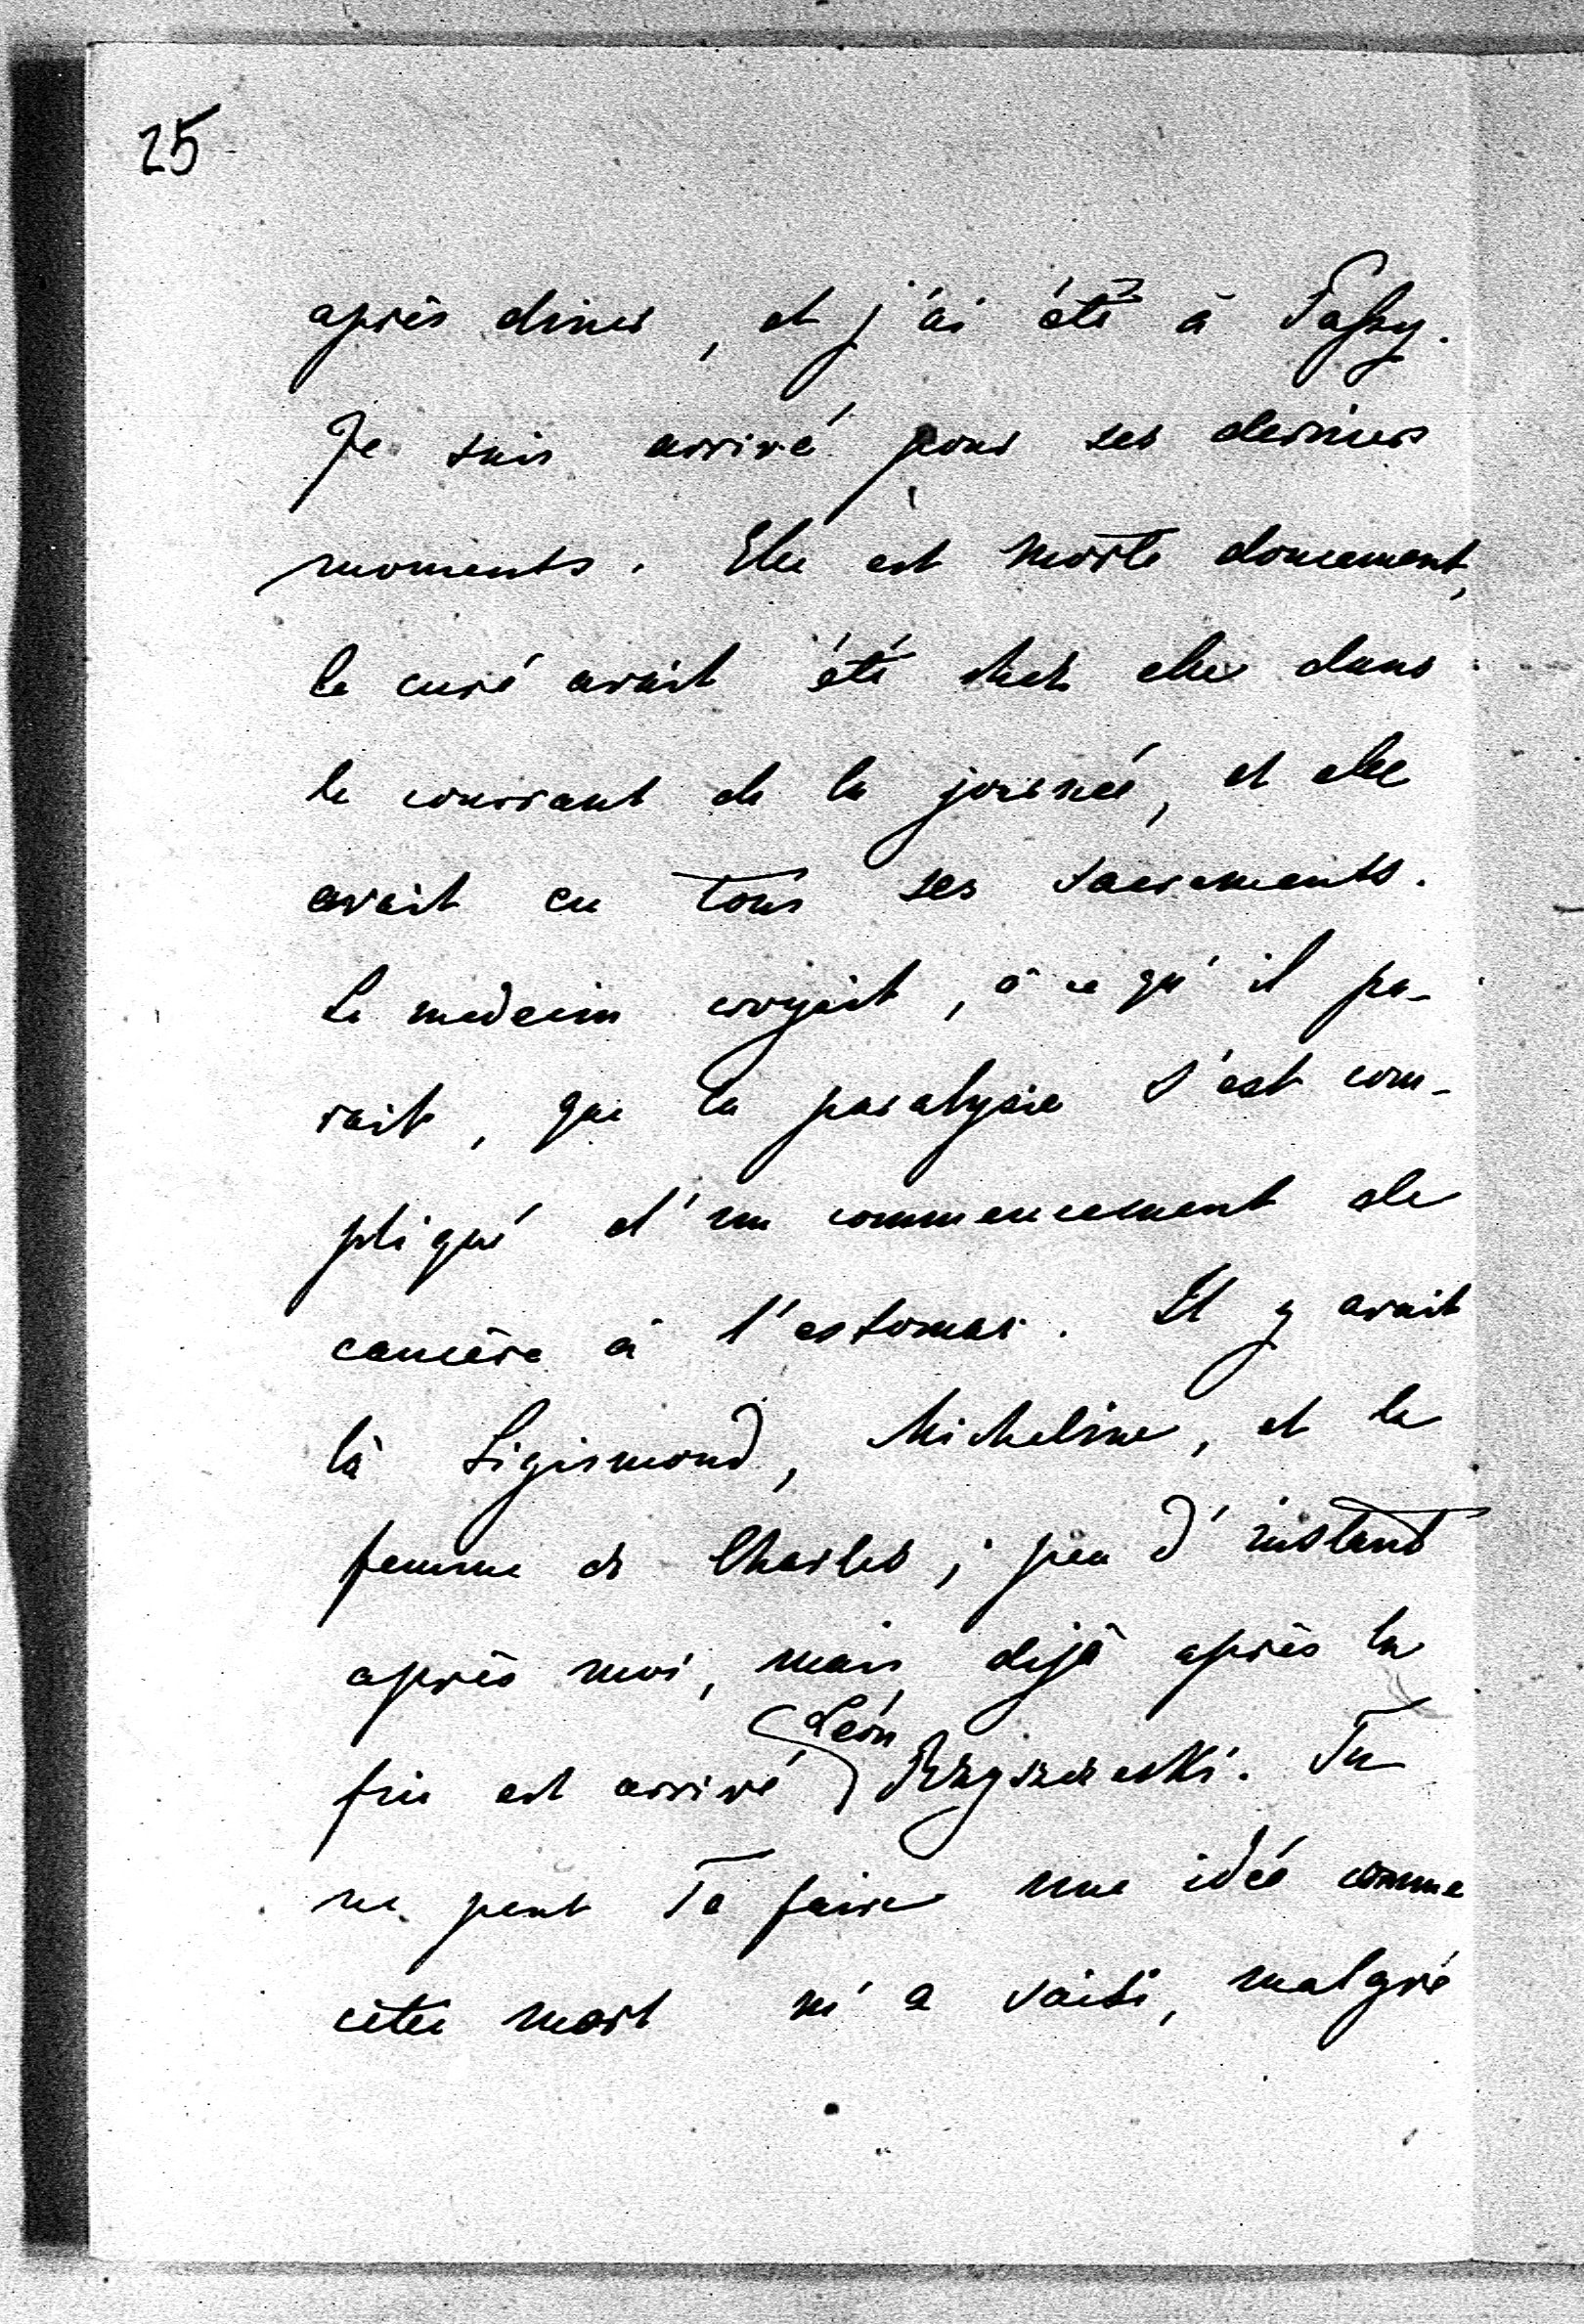 25
après diner, et j'ai été à Passy.
Je suis arrivé pour ses derniers
moments. Elle est morte doucement,
le curé avait été chez elle dans
le courrant de la journée, et elle
avait eu tous ses sacrements.
Le medecin croyait, à ce qu'il pa-
rait, que la paralysie s'est com-
pliqué d'un commencement de
cancère à l'estomac. Il y avait
là Sigismond, Micheline, et la
femme de Charles; peu d'instant
après moi, mais dejà après la
Léon
fin est arrivé Rzyszczewski. Tu
ne peut Te faire une idée comme
cette mort m'a saisi, malgré